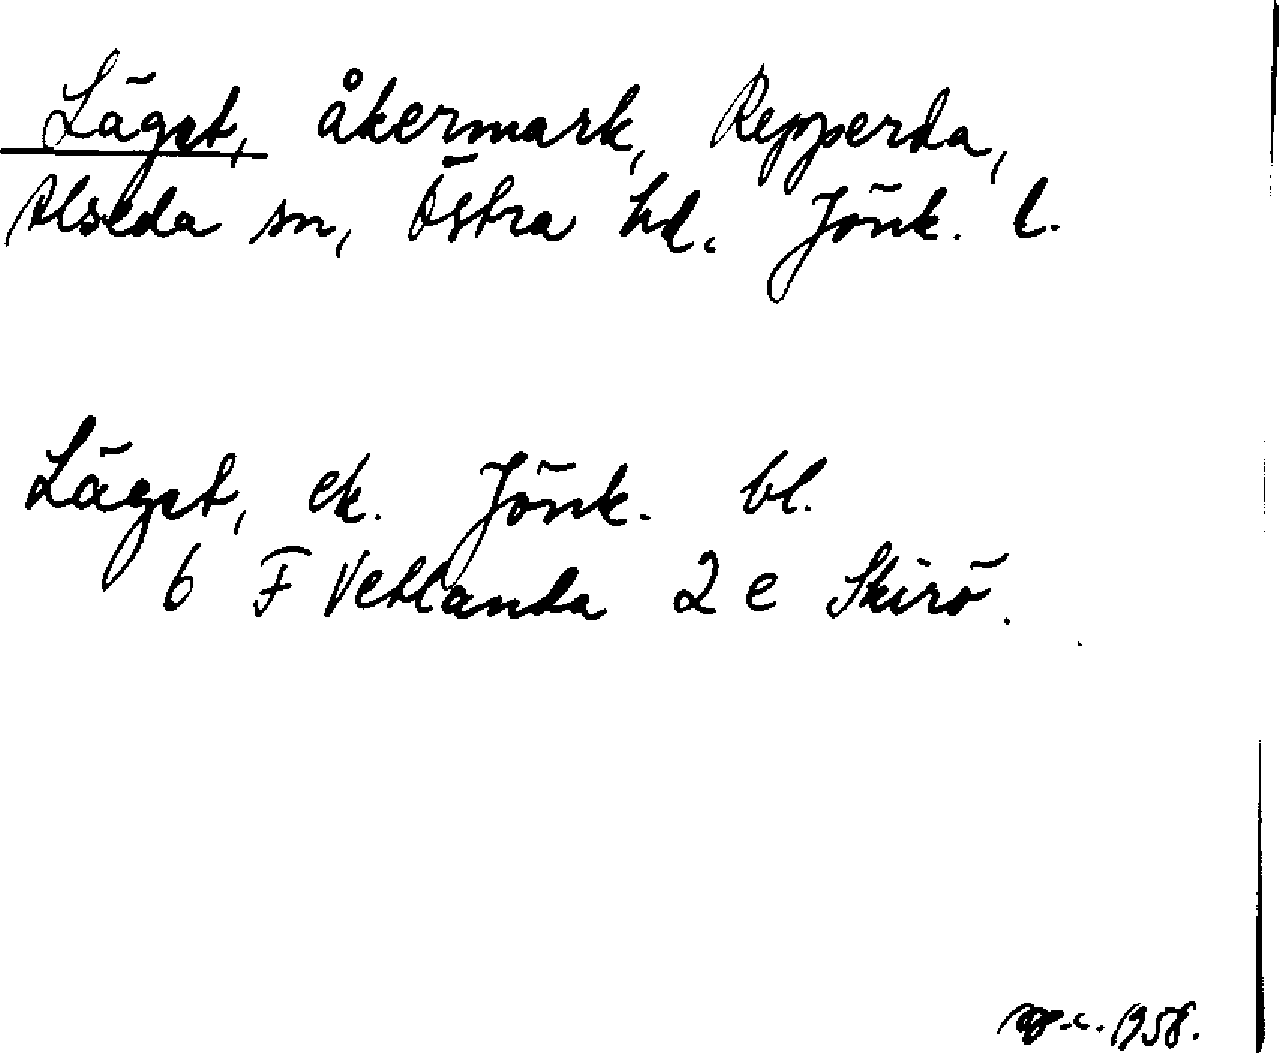 Läget, åkermark, Repperda,
Alseda sn, Östra hd. Jönk. l.
Läget, ek. Jönk. bl.
6 F Vetlanda 2 e Skirö.
1958.